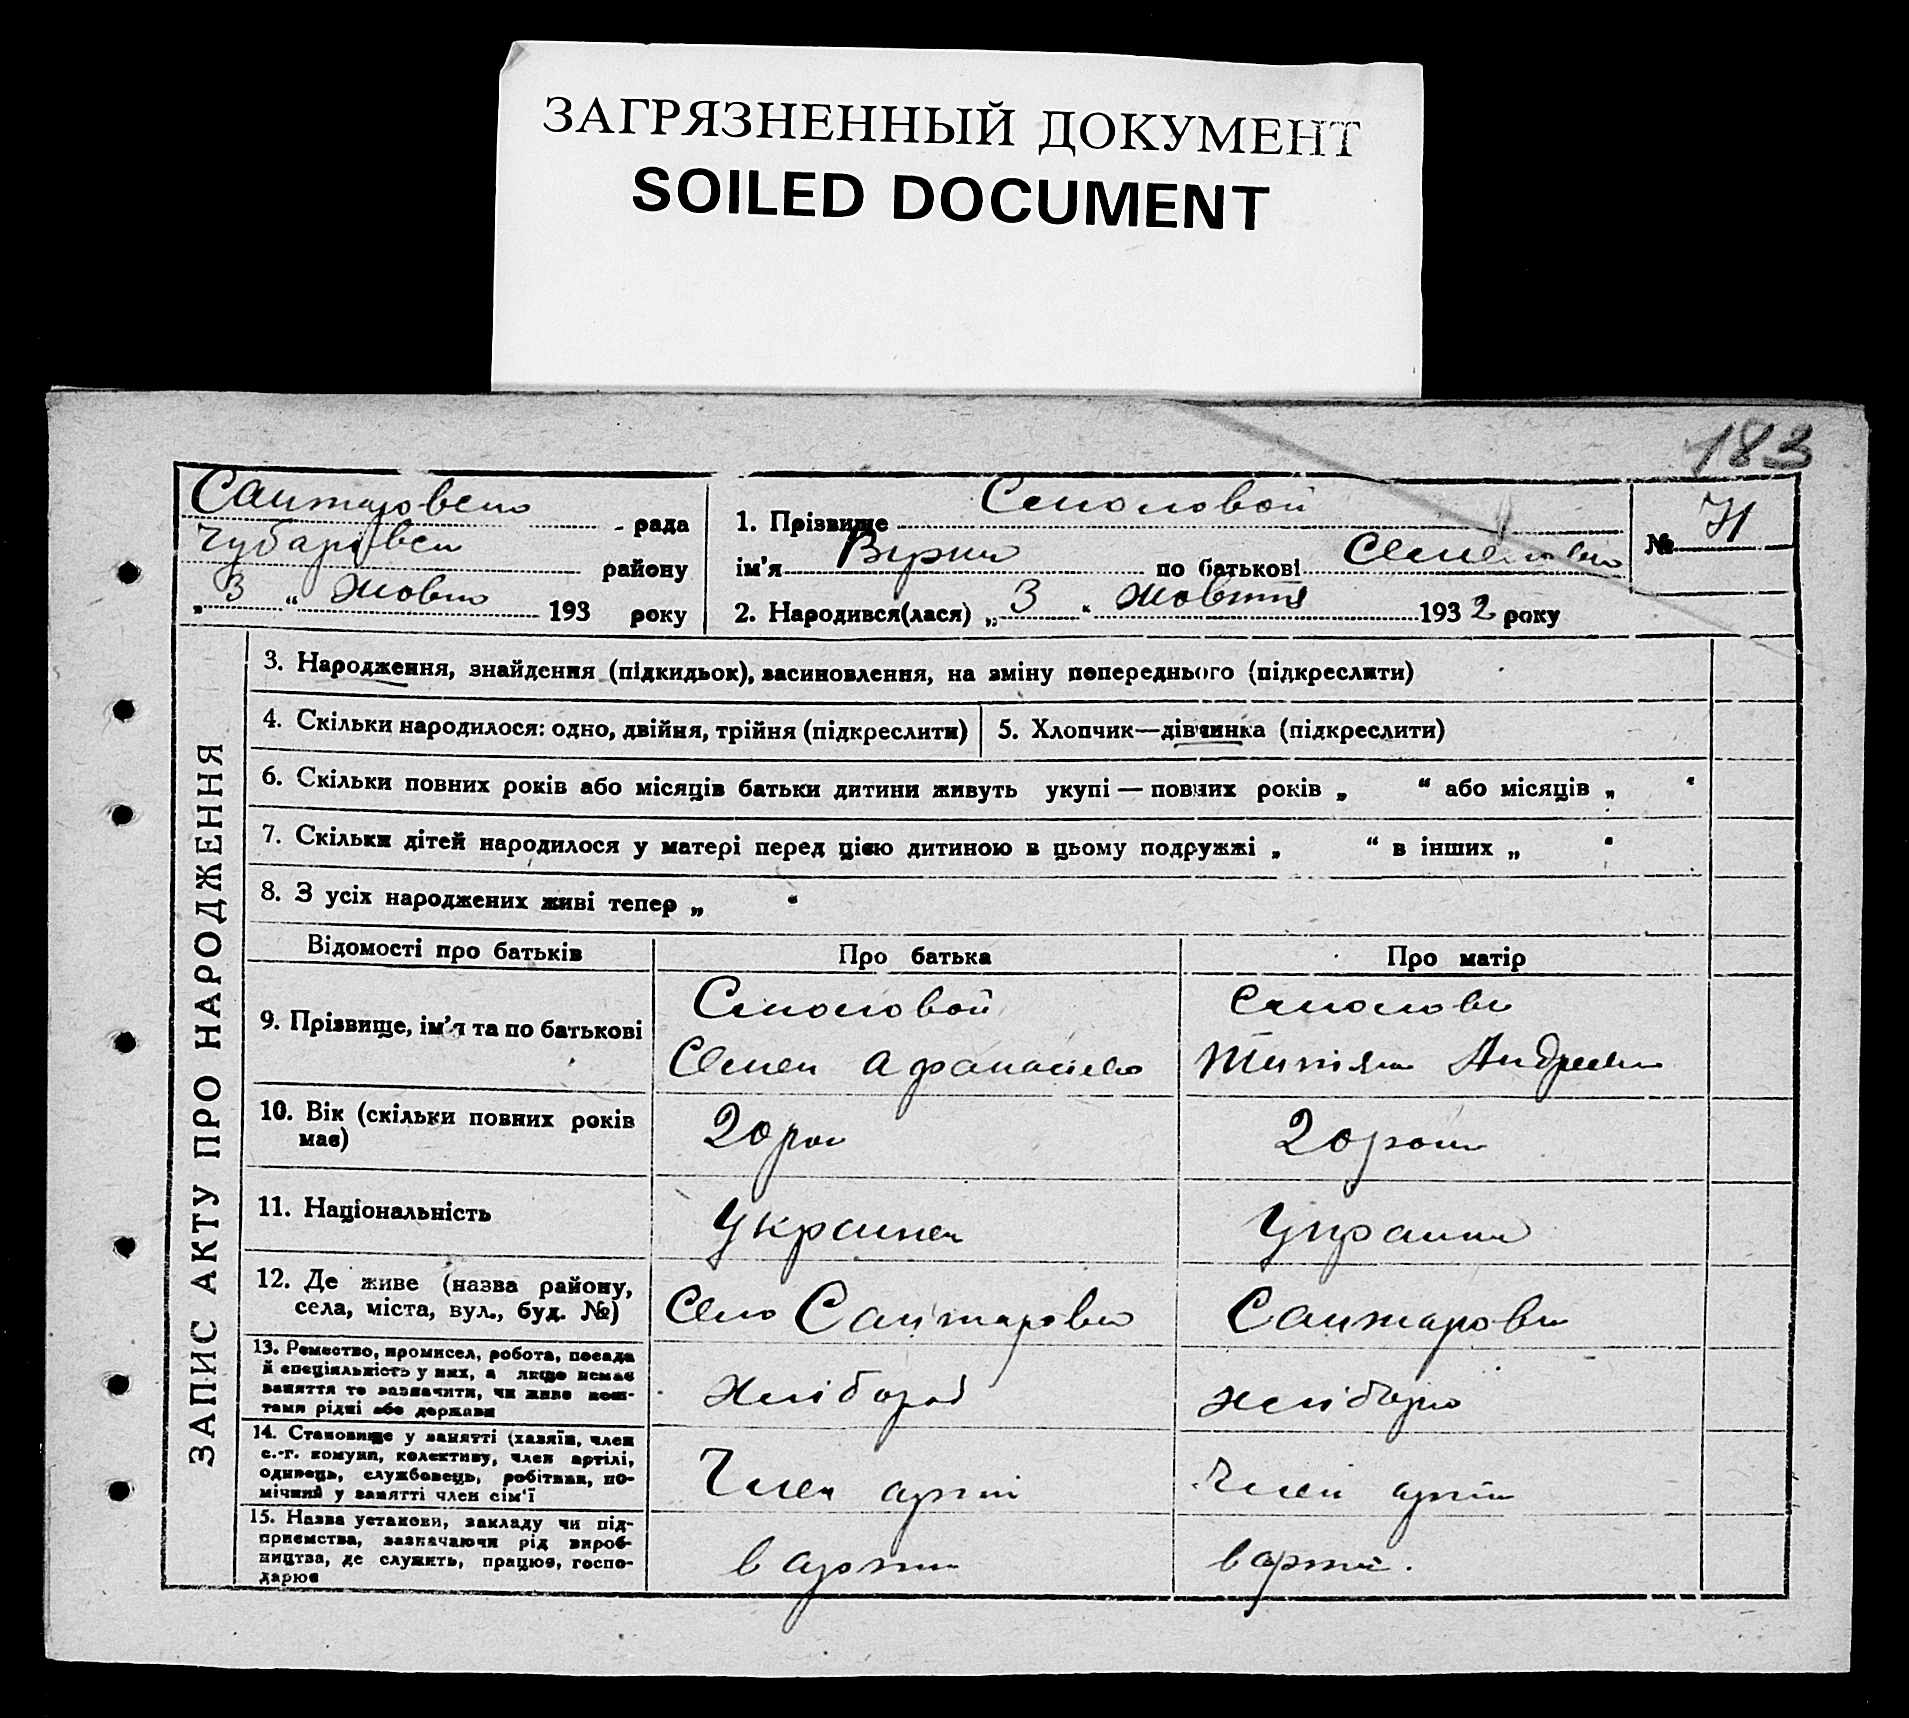 ЗАГРЯЗНЕННЫЙ ДОКУМЕНТ
SOILED DOCUMENT
183
рада
району
„ 3 “ Жовт 193 року
1. Прізвище
ім'я по батькові
2. Народився(лася) „ 3 “ Жовтня 1932 року
№ 71
ЗАПИС АКТУ ПРО НАРОДЖЕННЯ
3. Народження, знайдення (підкидьок), засиновлення, на зміну попереднього (підкреслити)
4. Скільки народилося: одно, двійня, трійня (підкреслити)
5. Хлопчик—дівчинка (підкреслити)
6. Скільки повних років або місяців батьки дитини живуть укупі — повних років „ “ або місяців „ “
7. Скільки дітей народилося у матері перед цією дитиною в цьому подружжі „ “ в інших „ “
8. З усіх народжених живі тепер „ “
Відомості про батьків
Про батька
Про матір
9. Прізвище, ім'я та по батькові
Семен
10. Вік (скільки повних років
має)
20 рок
20 рок
11. Національність
Украинец
12. Де живе (назва району,
села, міста, вул., буд. №)
Село
13. Ремество, промисел, робота, посада
й спеціяльність у них, а якщо немає
заняття то зазначити, чи живе кош-
тами рідні або держави
хлібороб
14. Становище у занятті (хазяїн, член
с.-г. комуни, колективу, член артілі,
одинець, службовець, робітник, по-
мічний у занятті член сім'ї
Член артіл
Член артіл
15. Назва установи, закладу чи під-
приємства, зазначаючи рід вироб-
ництва, де служить, працює, госпо-
дарює
в артіл
в артіл.